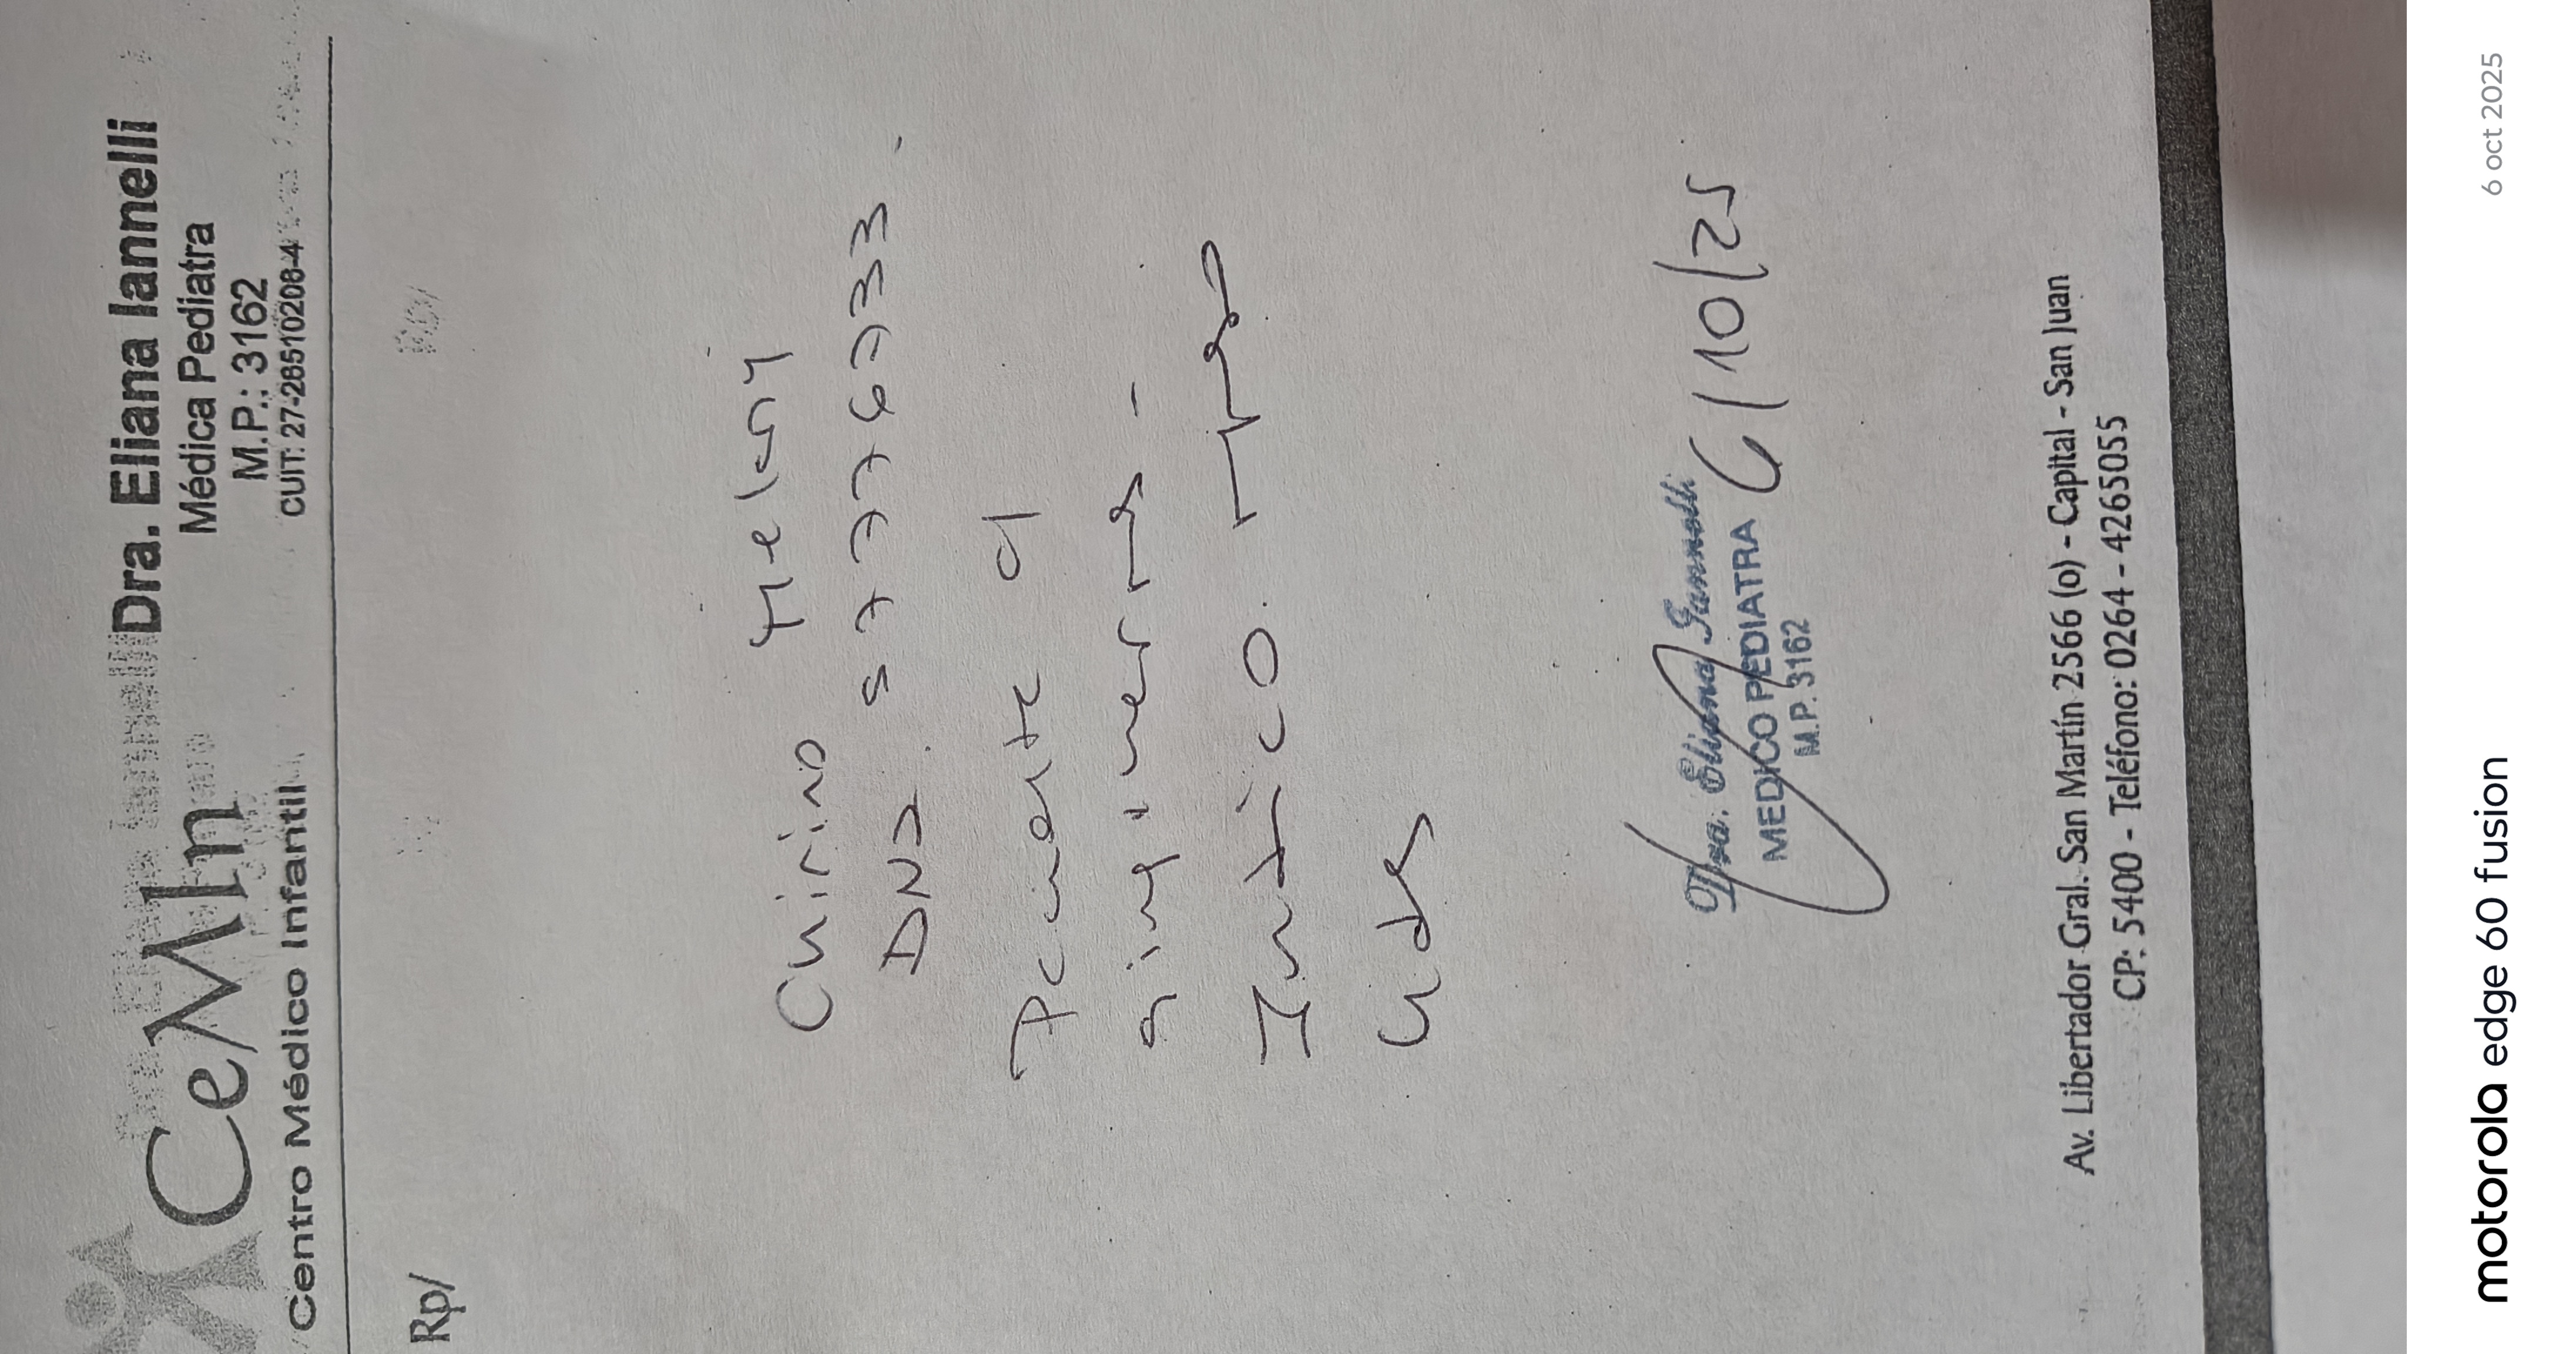 CeMIn
Centro Médico Infantil
Dra. Eliana Iannelli
Médica Pediatra
M.P.: 3162
CUIT: 27-26510208-4
Rp/
Quirino Melany
DNI 57776733
Indico reposo
6/10/25
Dra. Eliana Iannelli
MEDICO PEDIATRA
M.P. 3162
Av. Libertador Gral. San Martín 2566 (o) - Capital - San Juan
CP: 5400 - Teléfono: 0264 - 4265055
motorola edge 60 fusion
6 oct 2025